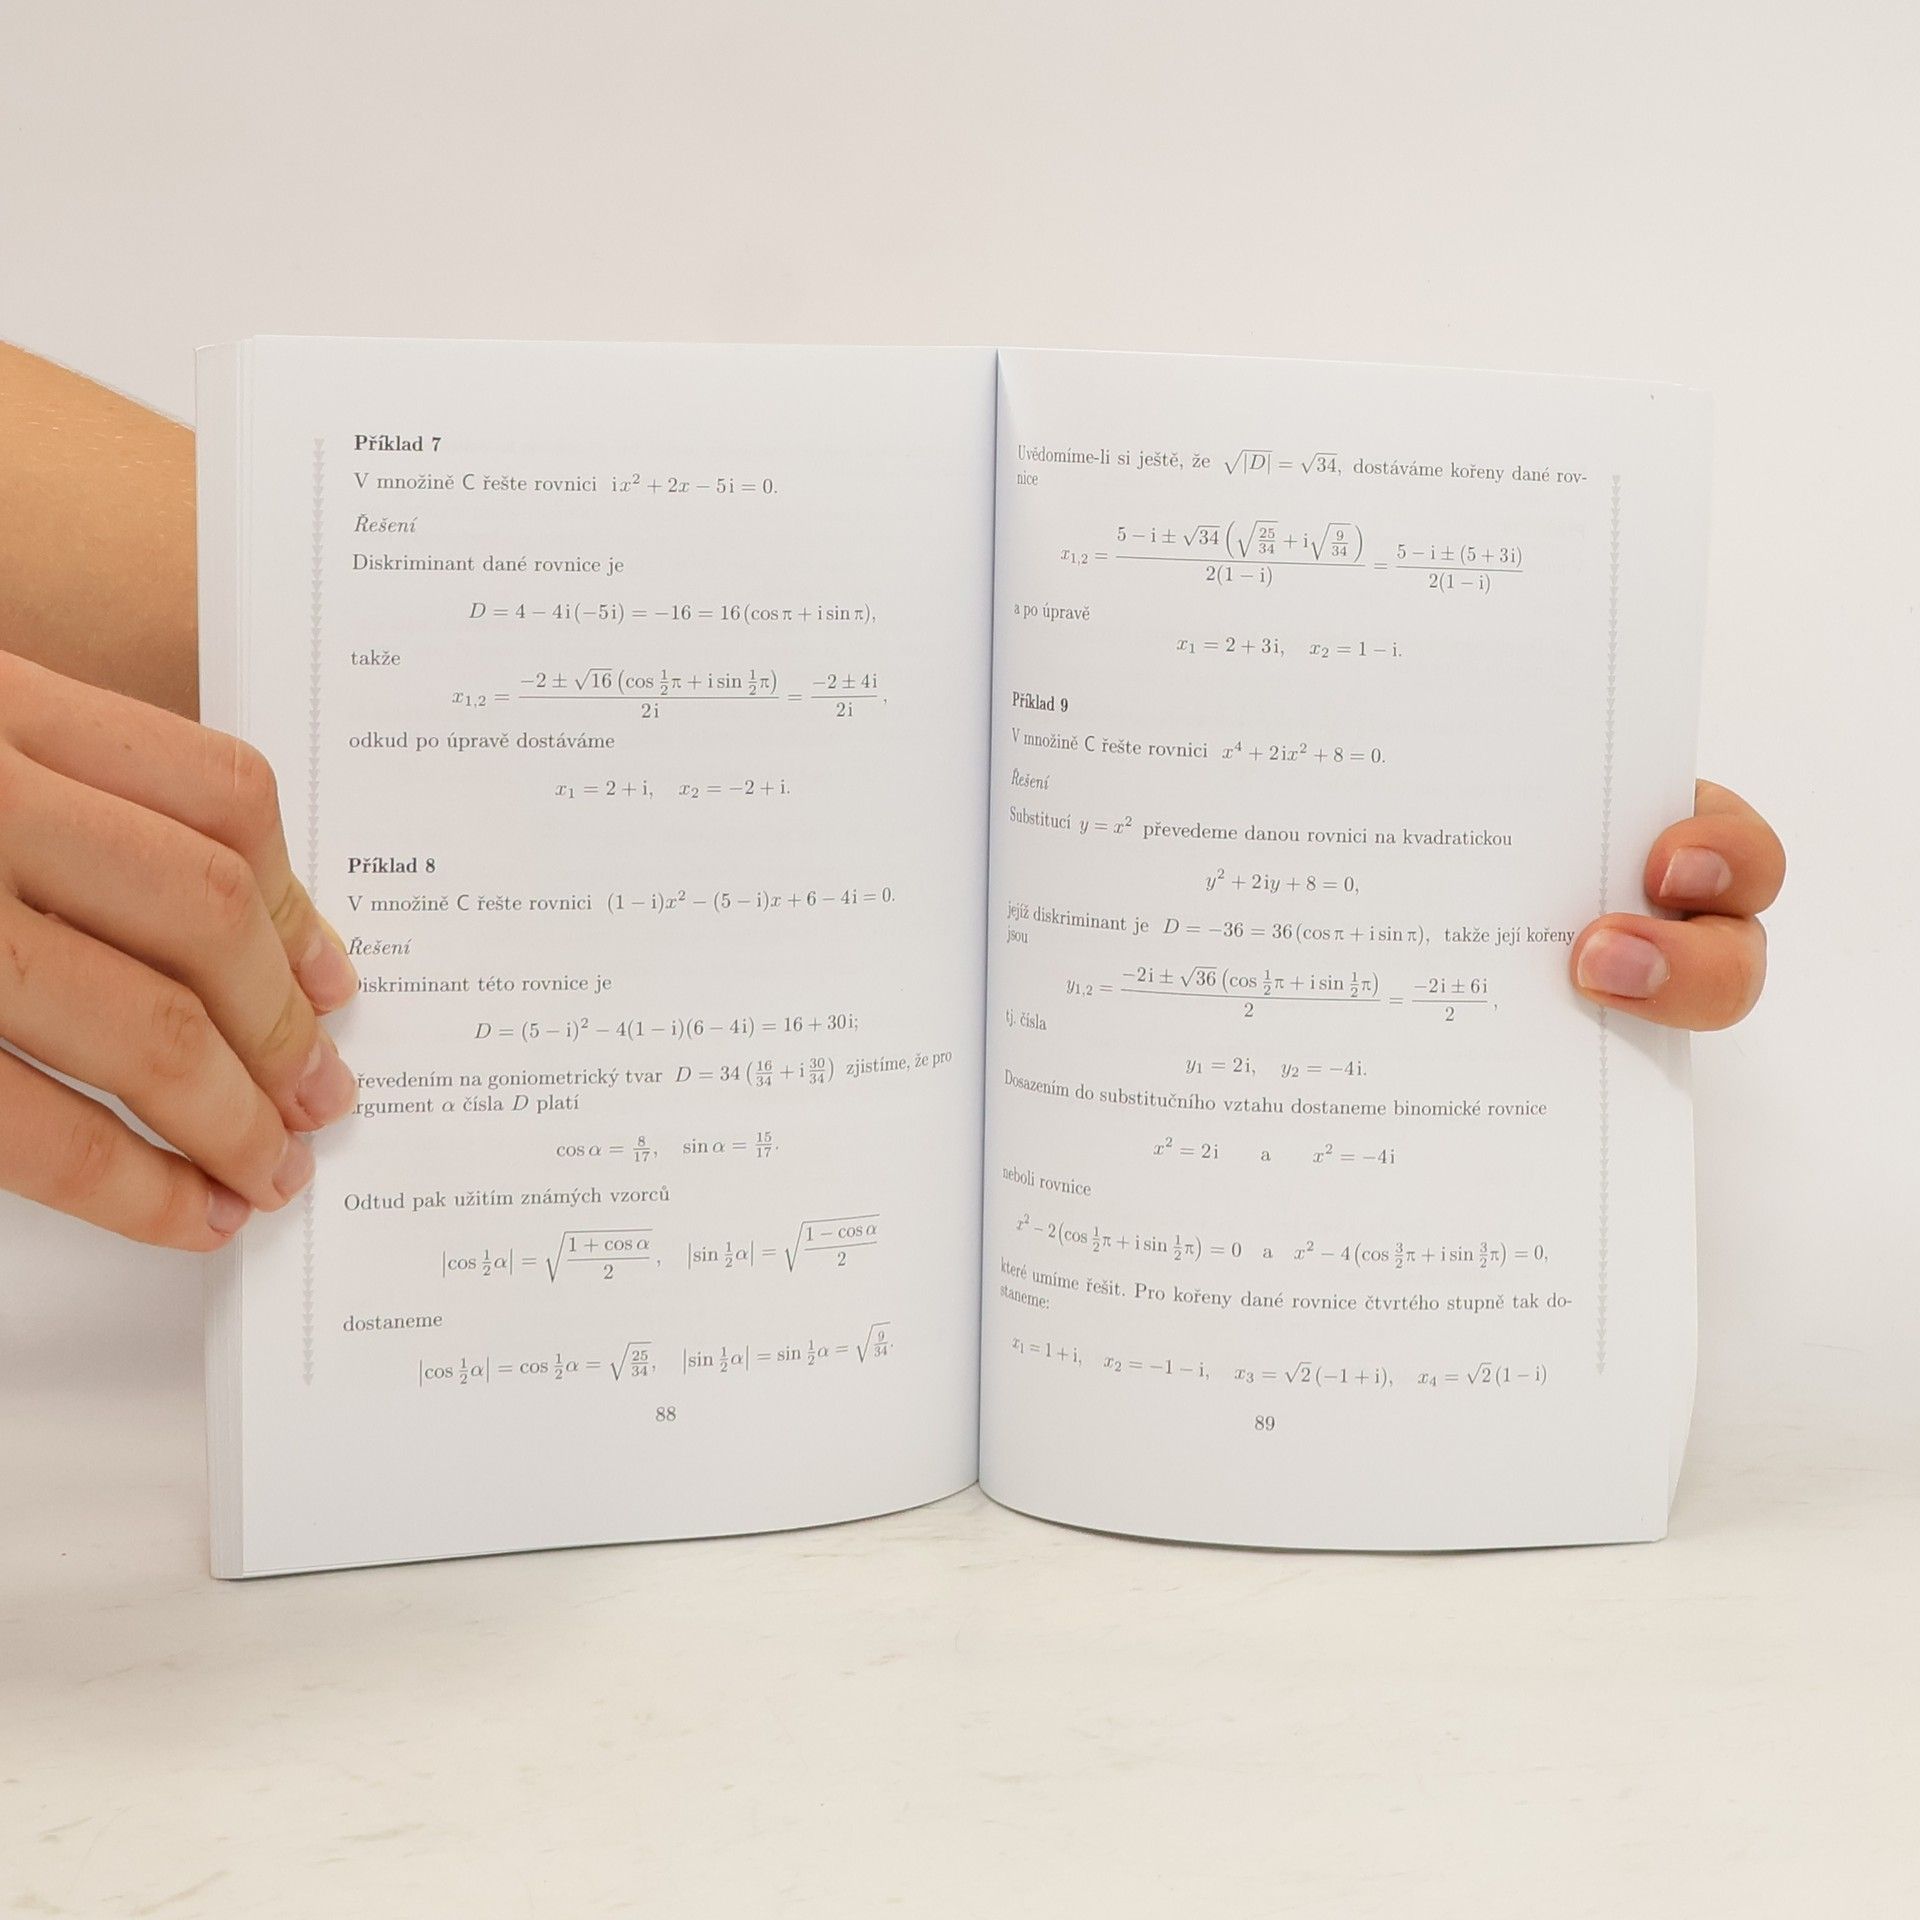 Příklad 7
V množině C řešte rovnici ix² + 2x − 5i = 0.
Řešení
Diskriminant dané rovnice je
D = 4 − 4i(−5i) = −16 = 16(cos π + i sin π),
takže
x₁,₂ = (−2 ± √16 (cos ½π + i sin ½π))/(2i) = (−2 ± 4i)/(2i),
odkud po úpravě dostáváme
x₁ = 2 + i, x₂ = −2 + i.
Příklad 8
V množině C řešte rovnici (1 − i)x² − (5 − i)x + 6 − 4i = 0.
Řešení
iskriminant této rovnice je
D = (5 − i)² − 4(1 − i)(6 − 4i) = 16 + 30i;
řevedením na goniometrický tvar D = 34 (16/34 + i 30/34) zjistíme, že pro
rgument α čísla D platí
cos α = 8/17, sin α = 15/17.
Odtud pak užitím známých vzorců
|cos ½α| = √((1 + cos α)/2), |sin ½α| = √((1 − cos α)/2)
dostaneme
|cos ½α| = cos ½α = √(25/34), |sin ½α| = sin ½α = √(9/34).
88
Uvědomíme-li si ještě, že √|D| = √34, dostáváme kořeny dané rov-
nice
x₁,₂ = (5 − i ± √34 (√(25/34) + i√(9/34)))/(2(1 − i)) = (5 − i ± (5 + 3i))/(2(1 − i))
a po úpravě
x₁ = 2 + 3i, x₂ = 1 − i.
Příklad 9
V množině C řešte rovnici x⁴ + 2ix² + 8 = 0.
Řešení
Substitucí y = x² převedeme danou rovnici na kvadratickou
y² + 2iy + 8 = 0,
jejíž diskriminant je D = −36 = 36(cos π + i sin π), takže její kořeny
jsou
y₁,₂ = (−2i ± √36 (cos ½π + i sin ½π))/2 = (−2i ± 6i)/2,
tj. čísla
y₁ = 2i, y₂ = −4i.
Dosazením do substitučního vztahu dostaneme binomické rovnice
x² = 2i a x² = −4i
neboli rovnice
x² − 2(cos ½π + i sin ½π) = 0 a x² − 4(cos 3/2π + i sin 3/2π) = 0,
které umíme řešit. Pro kořeny dané rovnice čtvrtého stupně tak do-
staneme:
x₁ = 1 + i, x₂ = −1 − i, x₃ = √2(−1 + i), x₄ = √2(1 − i)
89